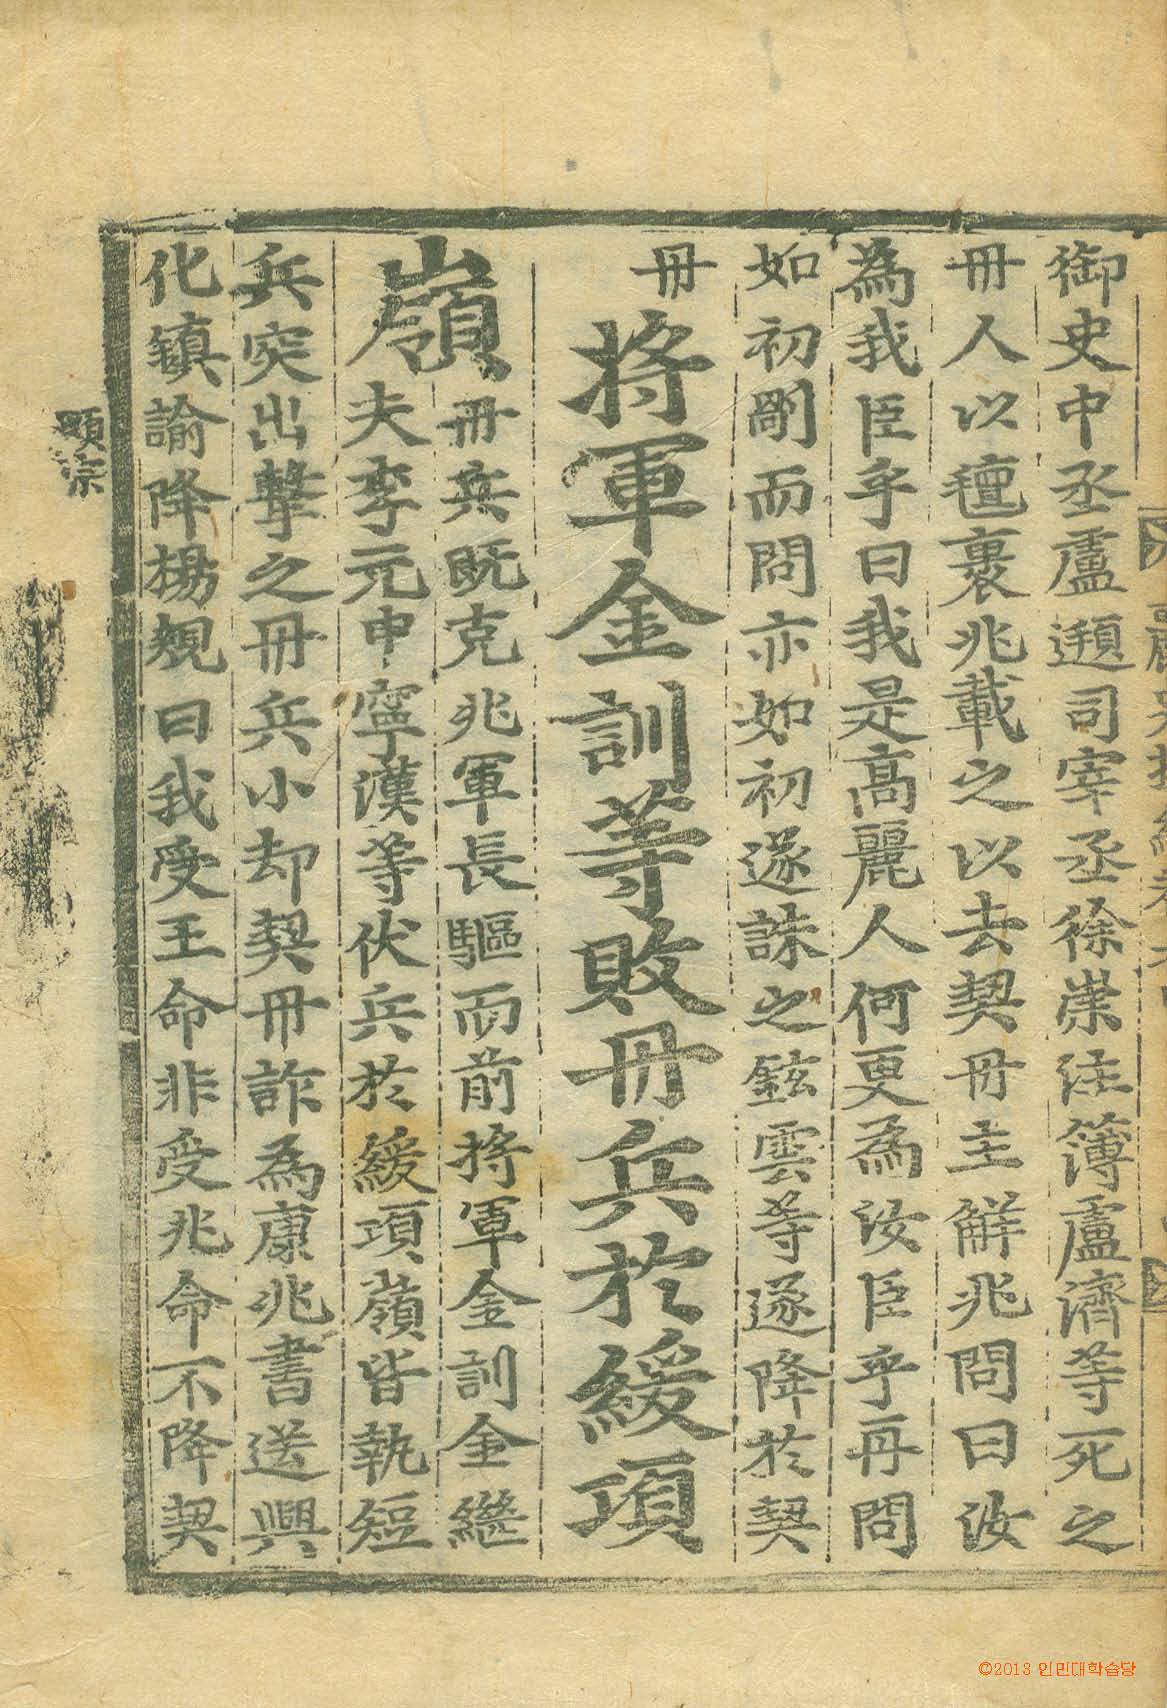 御史中丞盧頲司宰丞徐崇注簿盧濟等死之
丹人以氊裹兆載之以去契丹主觧兆問曰汝
為我臣乎曰我是高麗人何更為汝臣乎再問
如初剮而問亦如初遂誅之鉉雲等遂降於契
丹
將軍金訓等敗丹兵於緩項
嶺
丹兵既克兆軍長驅而前將軍金訓金繼
夫李元申寧漢等伏兵於緩項嶺皆執短
兵突出擊之丹兵小却契丹詐為康兆書送興
化鎮諭降楊規曰我受王命非受兆命不降契
顯宗
©2013 인민대학습당